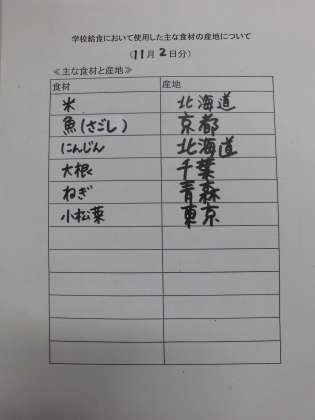 学校給食において使用した主な食材の産地について
(11月2日分)
≪主な食材と産地≫
食材 産地
米 北海道
魚(さごし) 京都
にんじん 北海道
大根 千葉
ねぎ 青森
小松菜 東京